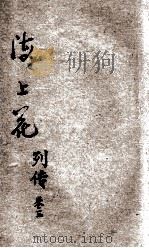 海上花
列傳 卷三
胡狗
mtoou.info